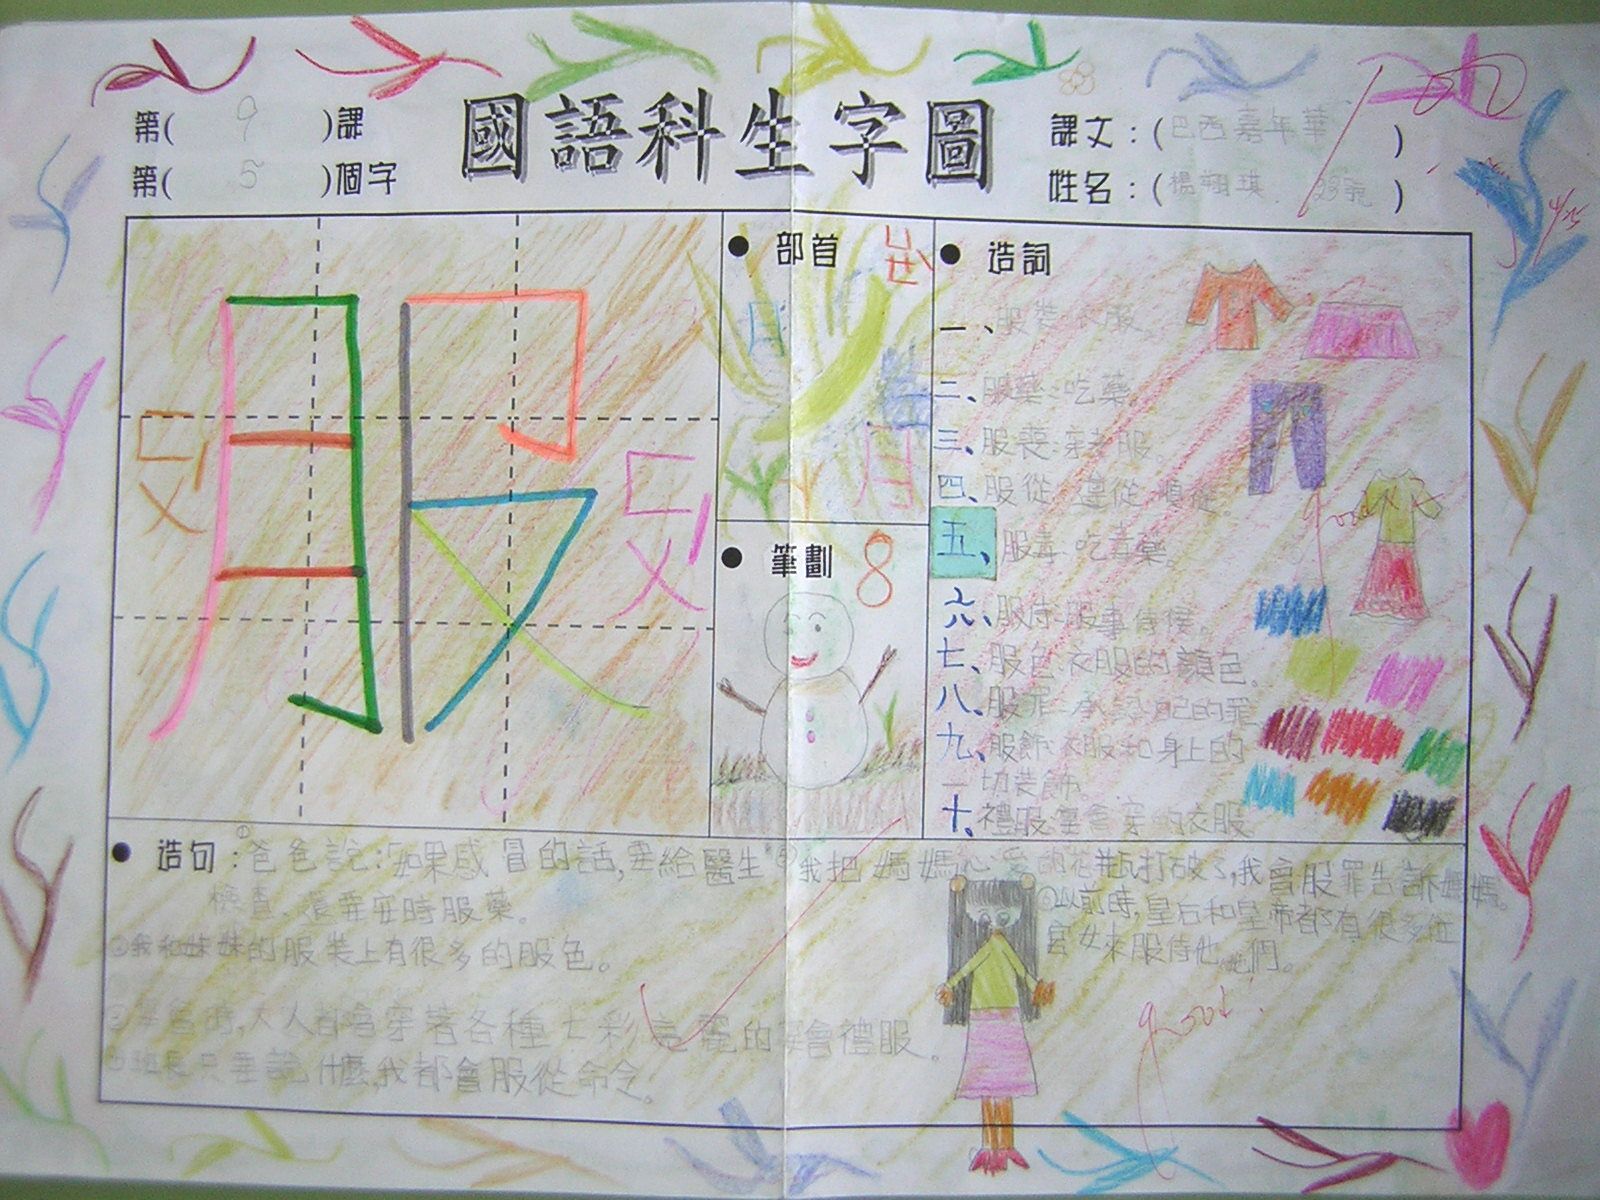 第( 9 )課
國語科生字圖
課文:(巴西嘉年華)
第( 5 )個字
姓名:(楊翊琪 )
服
●部首
月
●筆劃 8
●造詞
一、服裝:衣服。
二、服藥:吃藥。
三、服喪:穿孝服。
四、服從:遵從、順從。
五、服毒:吃毒藥。
六、服侍:服事侍候。
七、服色:衣服的顏色。
八、服罪:承認自己的罪
九、服飾:衣服和身上的
一切裝飾。
十、禮服:宴會穿的衣服
good
●造句:①爸爸說:「如果感冒的話,要給醫生
檢查,還要安時服藥。
②我和妹妹的服裝上有很多的服色。
大人都會穿著各種七彩亮麗的宴會禮服。
班長只要說什麼,我都會服從命令。
我把媽媽心愛的花瓶打破了,我會服罪告訴媽媽。
⑥以前時,皇后和皇帝都有很多
宮女來服侍他、她們。
good!